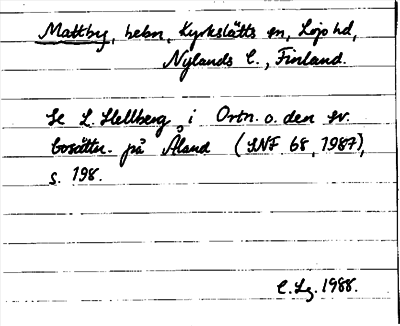 Mattby, hebn, Kyrkslätts sn, Lojo hd,
Nylands l., Finland.
Se L. Hellberg i Ortn. o. den sv.
bosättn. på Åland (SNF 68, 1987),
s. 198.
C.Lg. 1988.